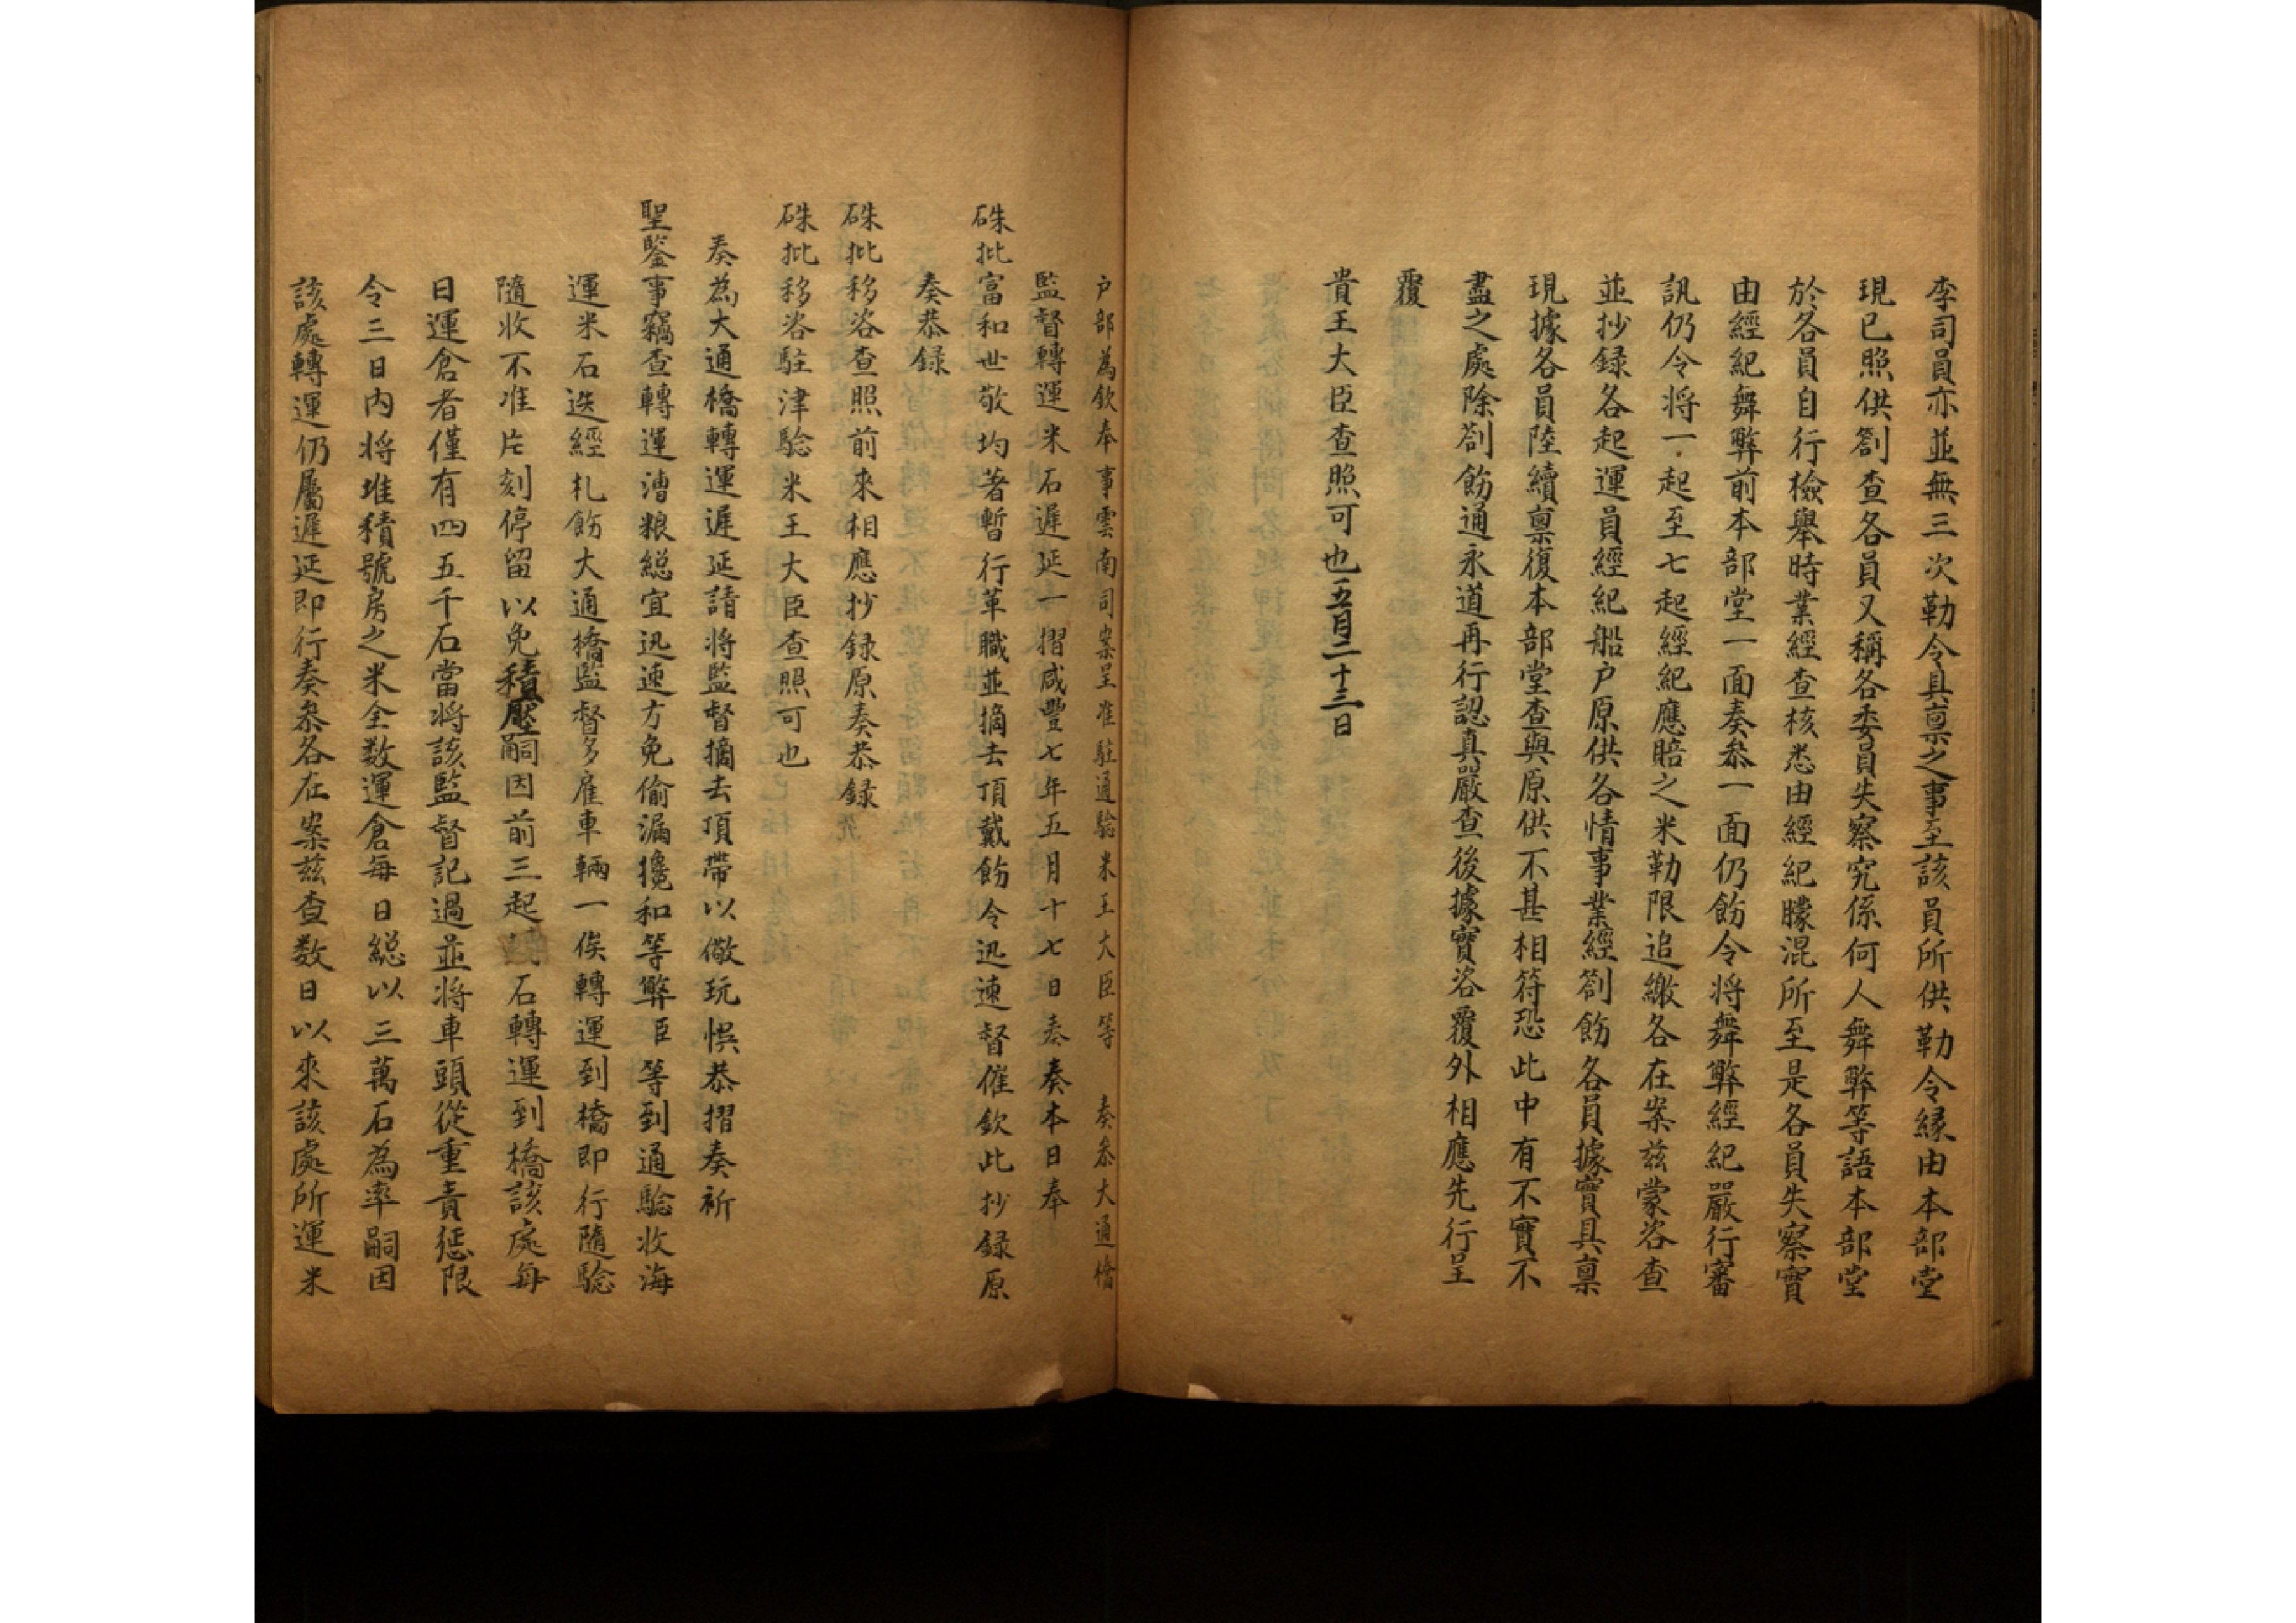 李司員亦並無三次勒令具禀之事至該員所供勒令縁由本部堂
現已照供劄查各員又稱各委員失察究係何人舞弊等語本部堂
於各員自行檢舉時業經查核悉由經紀朦混所至是各員失察實
由經紀舞弊前本部堂一面奏叅一面仍飭令将舞弊經紀嚴行審
訊仍令将一起至七起經紀應賠之米勒限追繳各在案茲蒙咨查
並抄録各起運員經紀船户原供各情事業經劄飭各員據實具禀
現據各員陸續禀復本部堂查與原供不甚相符恐此中有不實不
盡之處除劄飭通永道再行認真嚴查後據實咨覆外相應先行呈
覆
貴王大臣查照可也五月二十三日
户部為欽奉事雲南司案呈准駐通騐米王大臣等奏叅大通橋
監督轉運米石遲延一摺咸豐七年五月十七日奏奏本日奉
硃批富和世敬均著暫行革職並摘去頂戴飭令迅速督催欽此抄録原
奏恭録
硃批移咨查照前來相應抄録原奏恭録
硃批移咨駐津騐米王大臣查照可也
奏為大通橋轉運遲延請将監督摘去頂帶以儆玩悞恭摺奏祈
聖鑒事竊查轉運漕粮総宜迅速方免偷漏攙和等弊臣等到通騐收海
運米石迭經札飭大通橋監督多雇車輛一俟轉運到橋即行隨騐
隨收不准片刻停留以免積壓嗣因前三起石轉運到橋該處每
日運倉者僅有四五千石當将該監督記過並将車頭從重責惩限
令三日內将堆積號房之米全数運倉每日総以三萬石為率嗣因
該處轉運仍屬遲延即行奏叅各在案茲查数日以來該處所運米